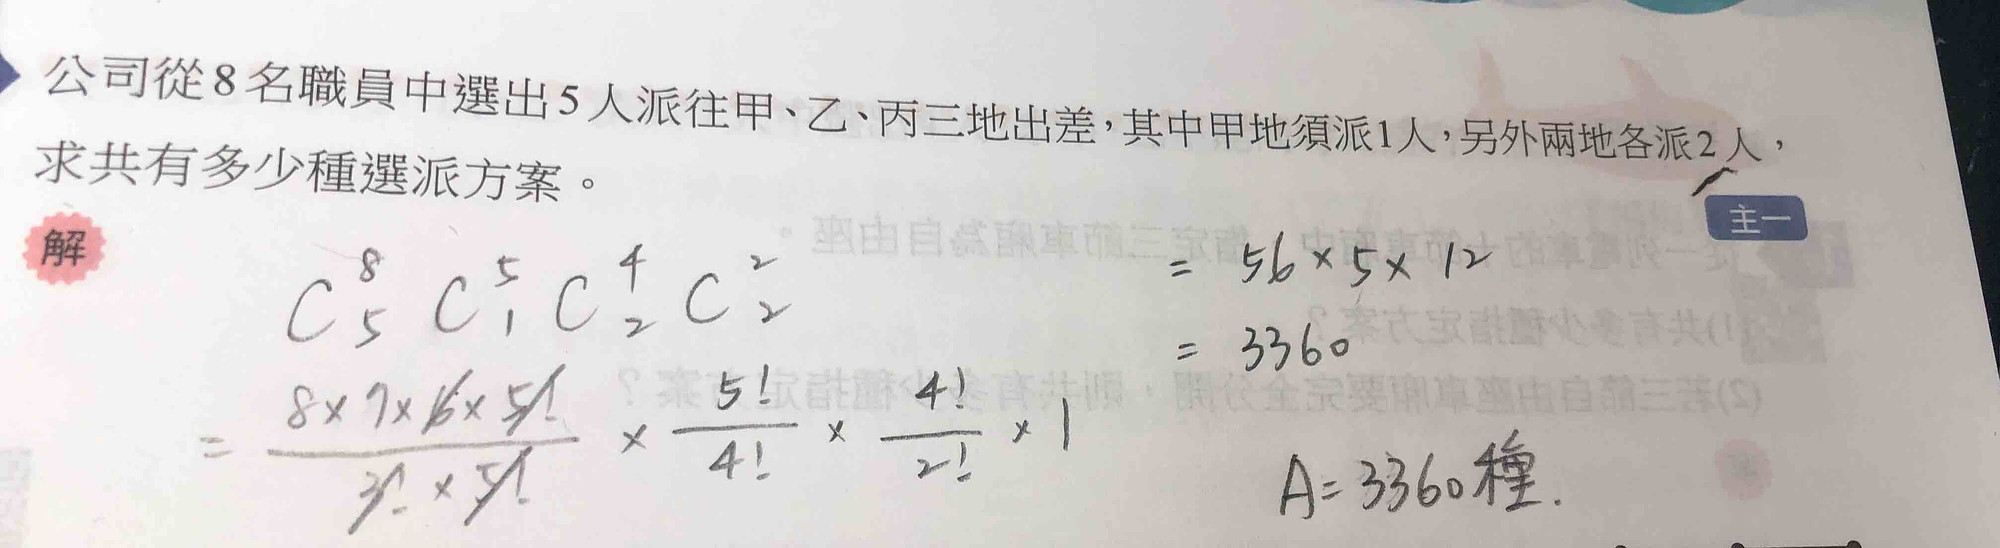 公司從8名職員中選出5人派往甲、乙、丙三地出差，其中甲地須派1人，另外兩地各派2人，
求共有多少種選派方案。
主一
解
C⁸₅ C⁵₁ C⁴₂ C²₂
= 8×7×6×5! / 3!×5! × 5! / 4! × 4! / 2! × 1
= 56×5×12
= 3360
A=3360種.